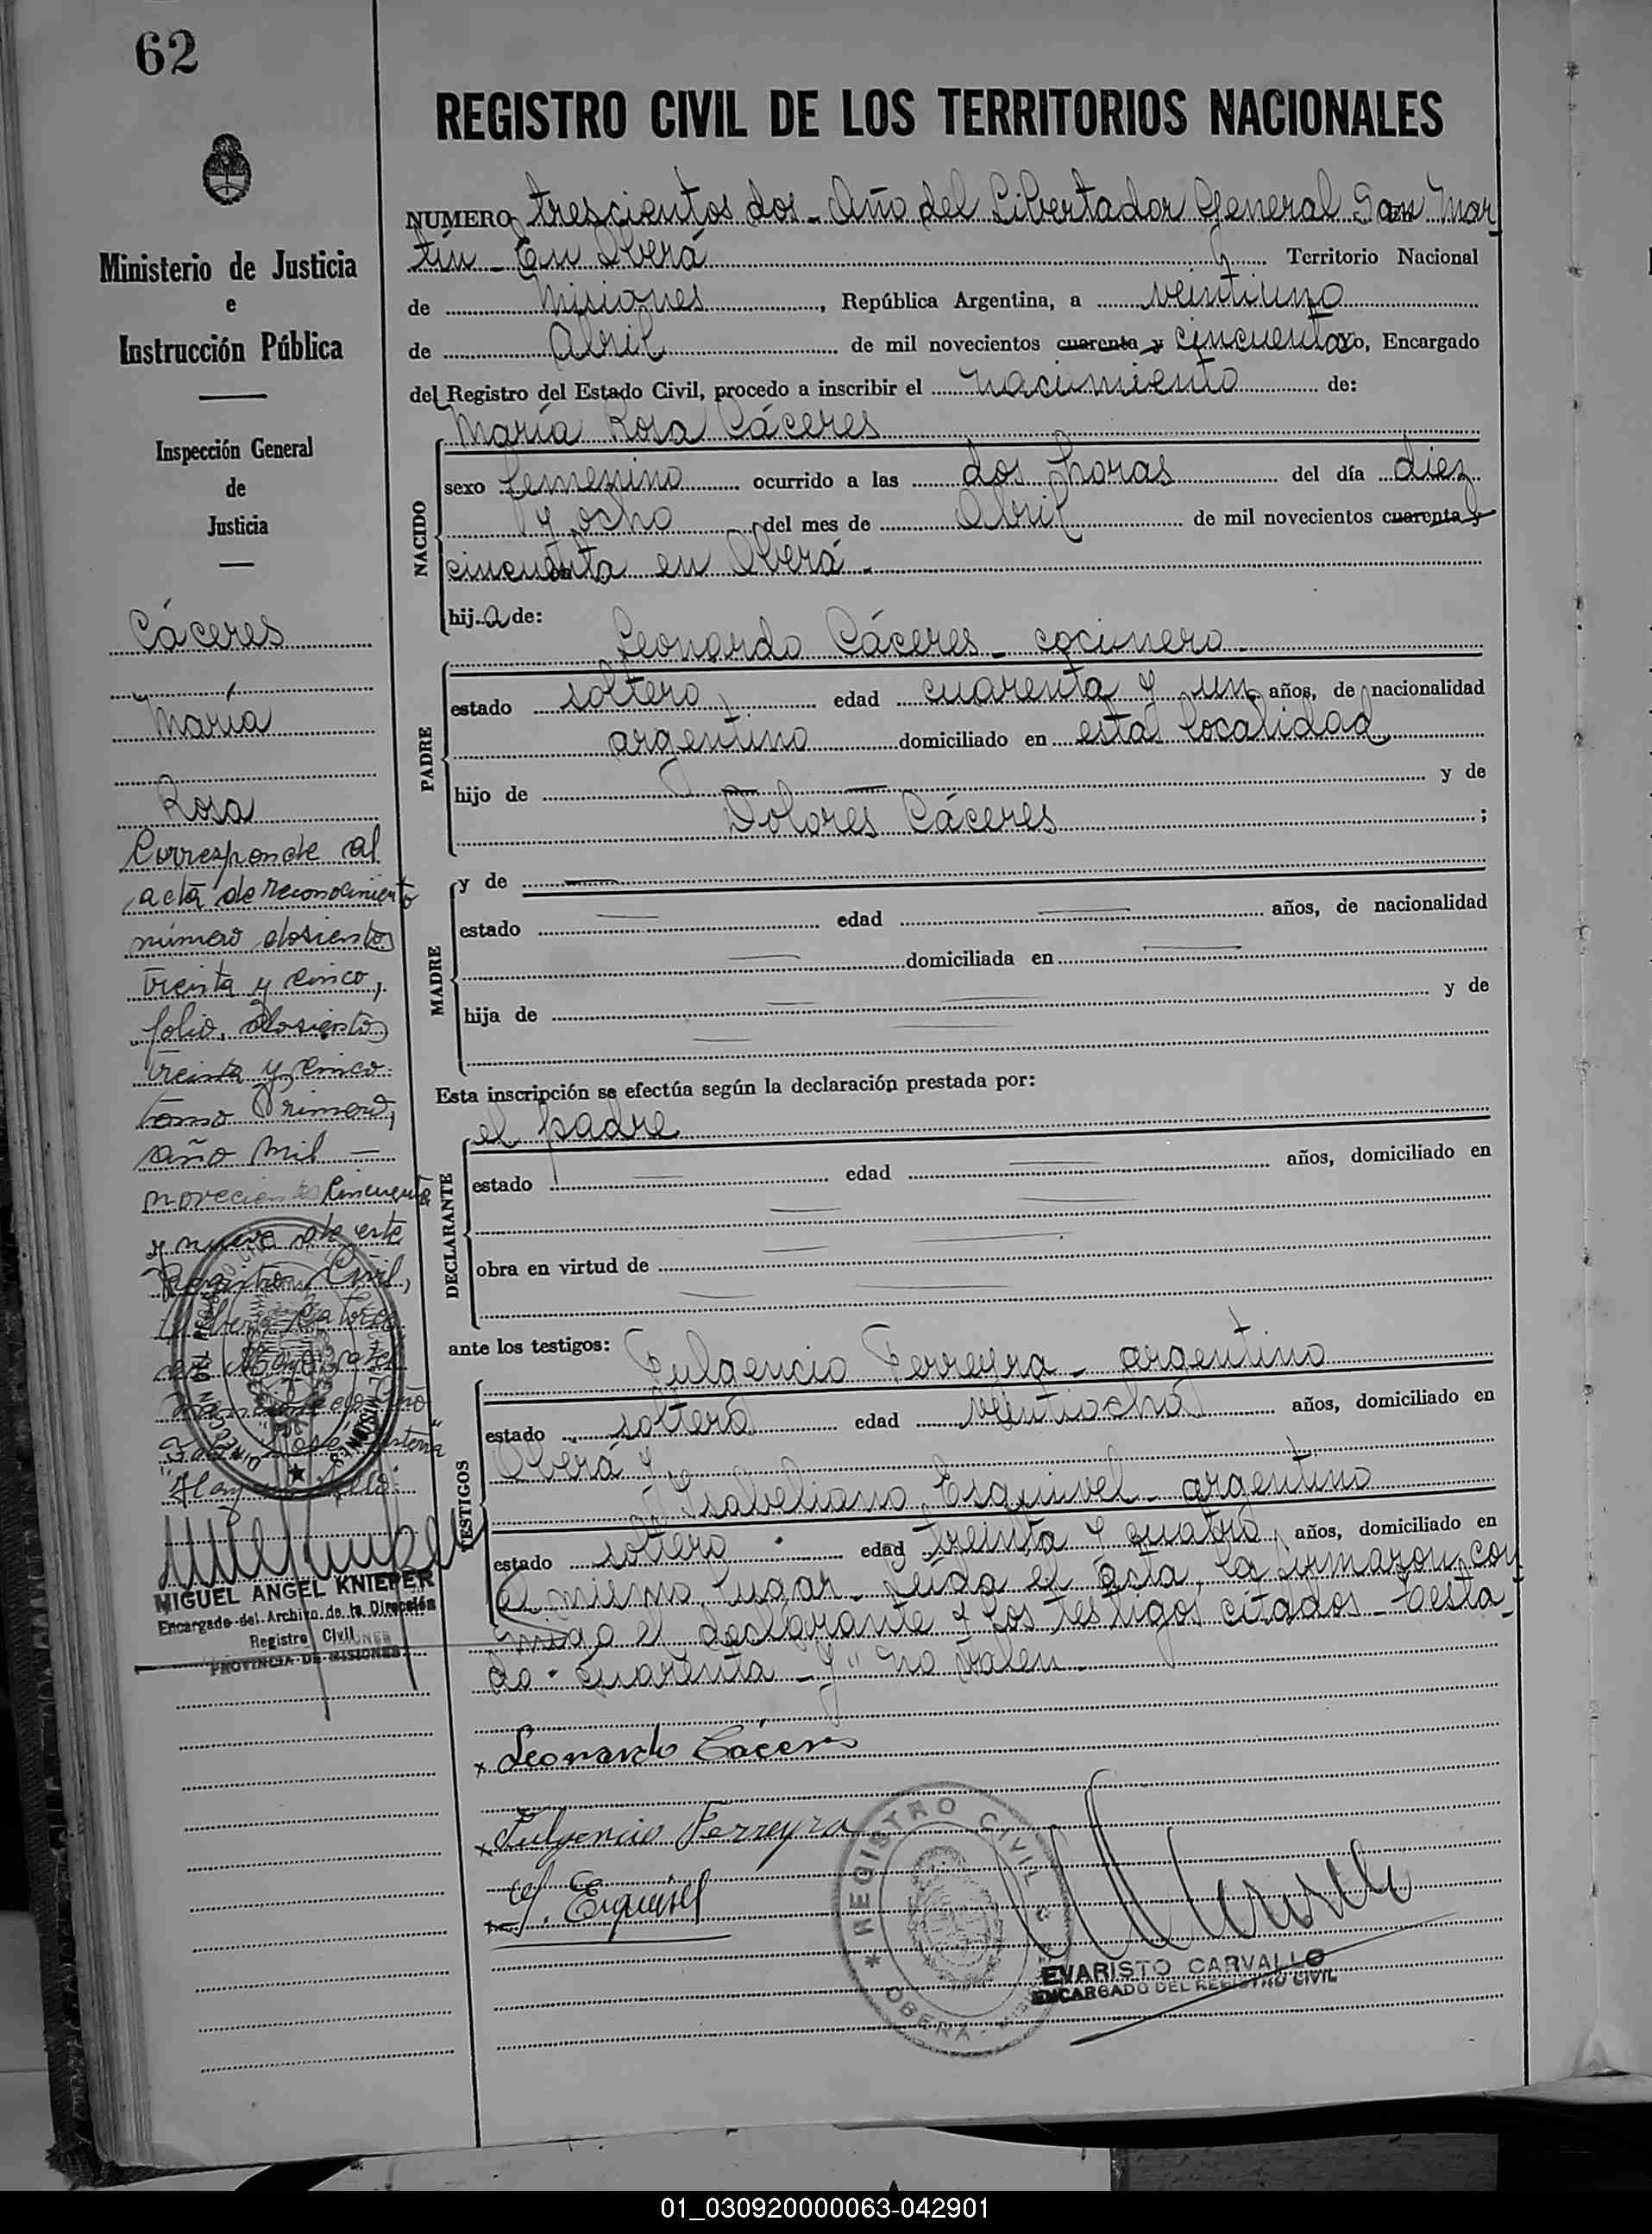 62
REGISTRO CIVIL DE LOS TERRITORIOS NACIONALES
NUMERO trescientos dos - Año del Libertador General San Mar
tín - En Oberá Territorio Nacional
de Misiones, República Argentina, a veintiuno
de Abril de mil novecientos cuarenta y cincuenta yo, Encargado
del Registro del Estado Civil, procedo a inscribir el nacimiento de:
María Rosa Cáceres
NACIDO
sexo femenino ocurrido a las dos horas del día diez
y ocho del mes de Abril de mil novecientos cuarenta y
cincuenta en Oberá -
hij a de:
Leonardo Cáceres - cocinero -
PADRE
estado soltero edad cuarenta y un años, de nacionalidad
argentino domiciliado en esta localidad
hijo de — y de
Dolores Cáceres ;
MADRE
y de —
estado — edad — años, de nacionalidad
— domiciliada en —
hija de — y de
—
Esta inscripción se efectúa según la declaración prestada por:
el padre
DECLARANTE
estado — edad — años, domiciliado en
—
obra en virtud de —
—
ante los testigos: Fulgencio Ferreyra - argentino
TESTIGOS
estado soltero edad veintiocho años, domiciliado en
Oberá y
Isabeliano Esquivel - argentino
estado soltero edad treinta y cuatro años, domiciliado en
el mismo lugar - Leída el acta, la firmaron con
migo el declarante y los testigos citados - Testa-
do "cuarenta - y" no valen -
x Leonardo Cáceres
x Fulgencio Ferreyra
I. Esquivel
REGISTRO CIVIL
OBERÁ
EVARISTO CARVALLO
ENCARGADO DEL REGISTRO CIVIL
Ministerio de Justicia
e
Instrucción Pública
Inspección General
de
Justicia
Cáceres
María
Rosa
Corresponde al
acta de reconocimiento
número dosientos
treinta y cinco,
folio, dosientos
treinta y cinco
tomo Primero,
año mil —
novecientos cincuenta
y nueve de este
Registro Civil,
MIGUEL ANGEL KNIEPER
Encargado del Archivo de la Dirección
Registro Civil
PROVINCIA DE MISIONES
01_030920000063-042901